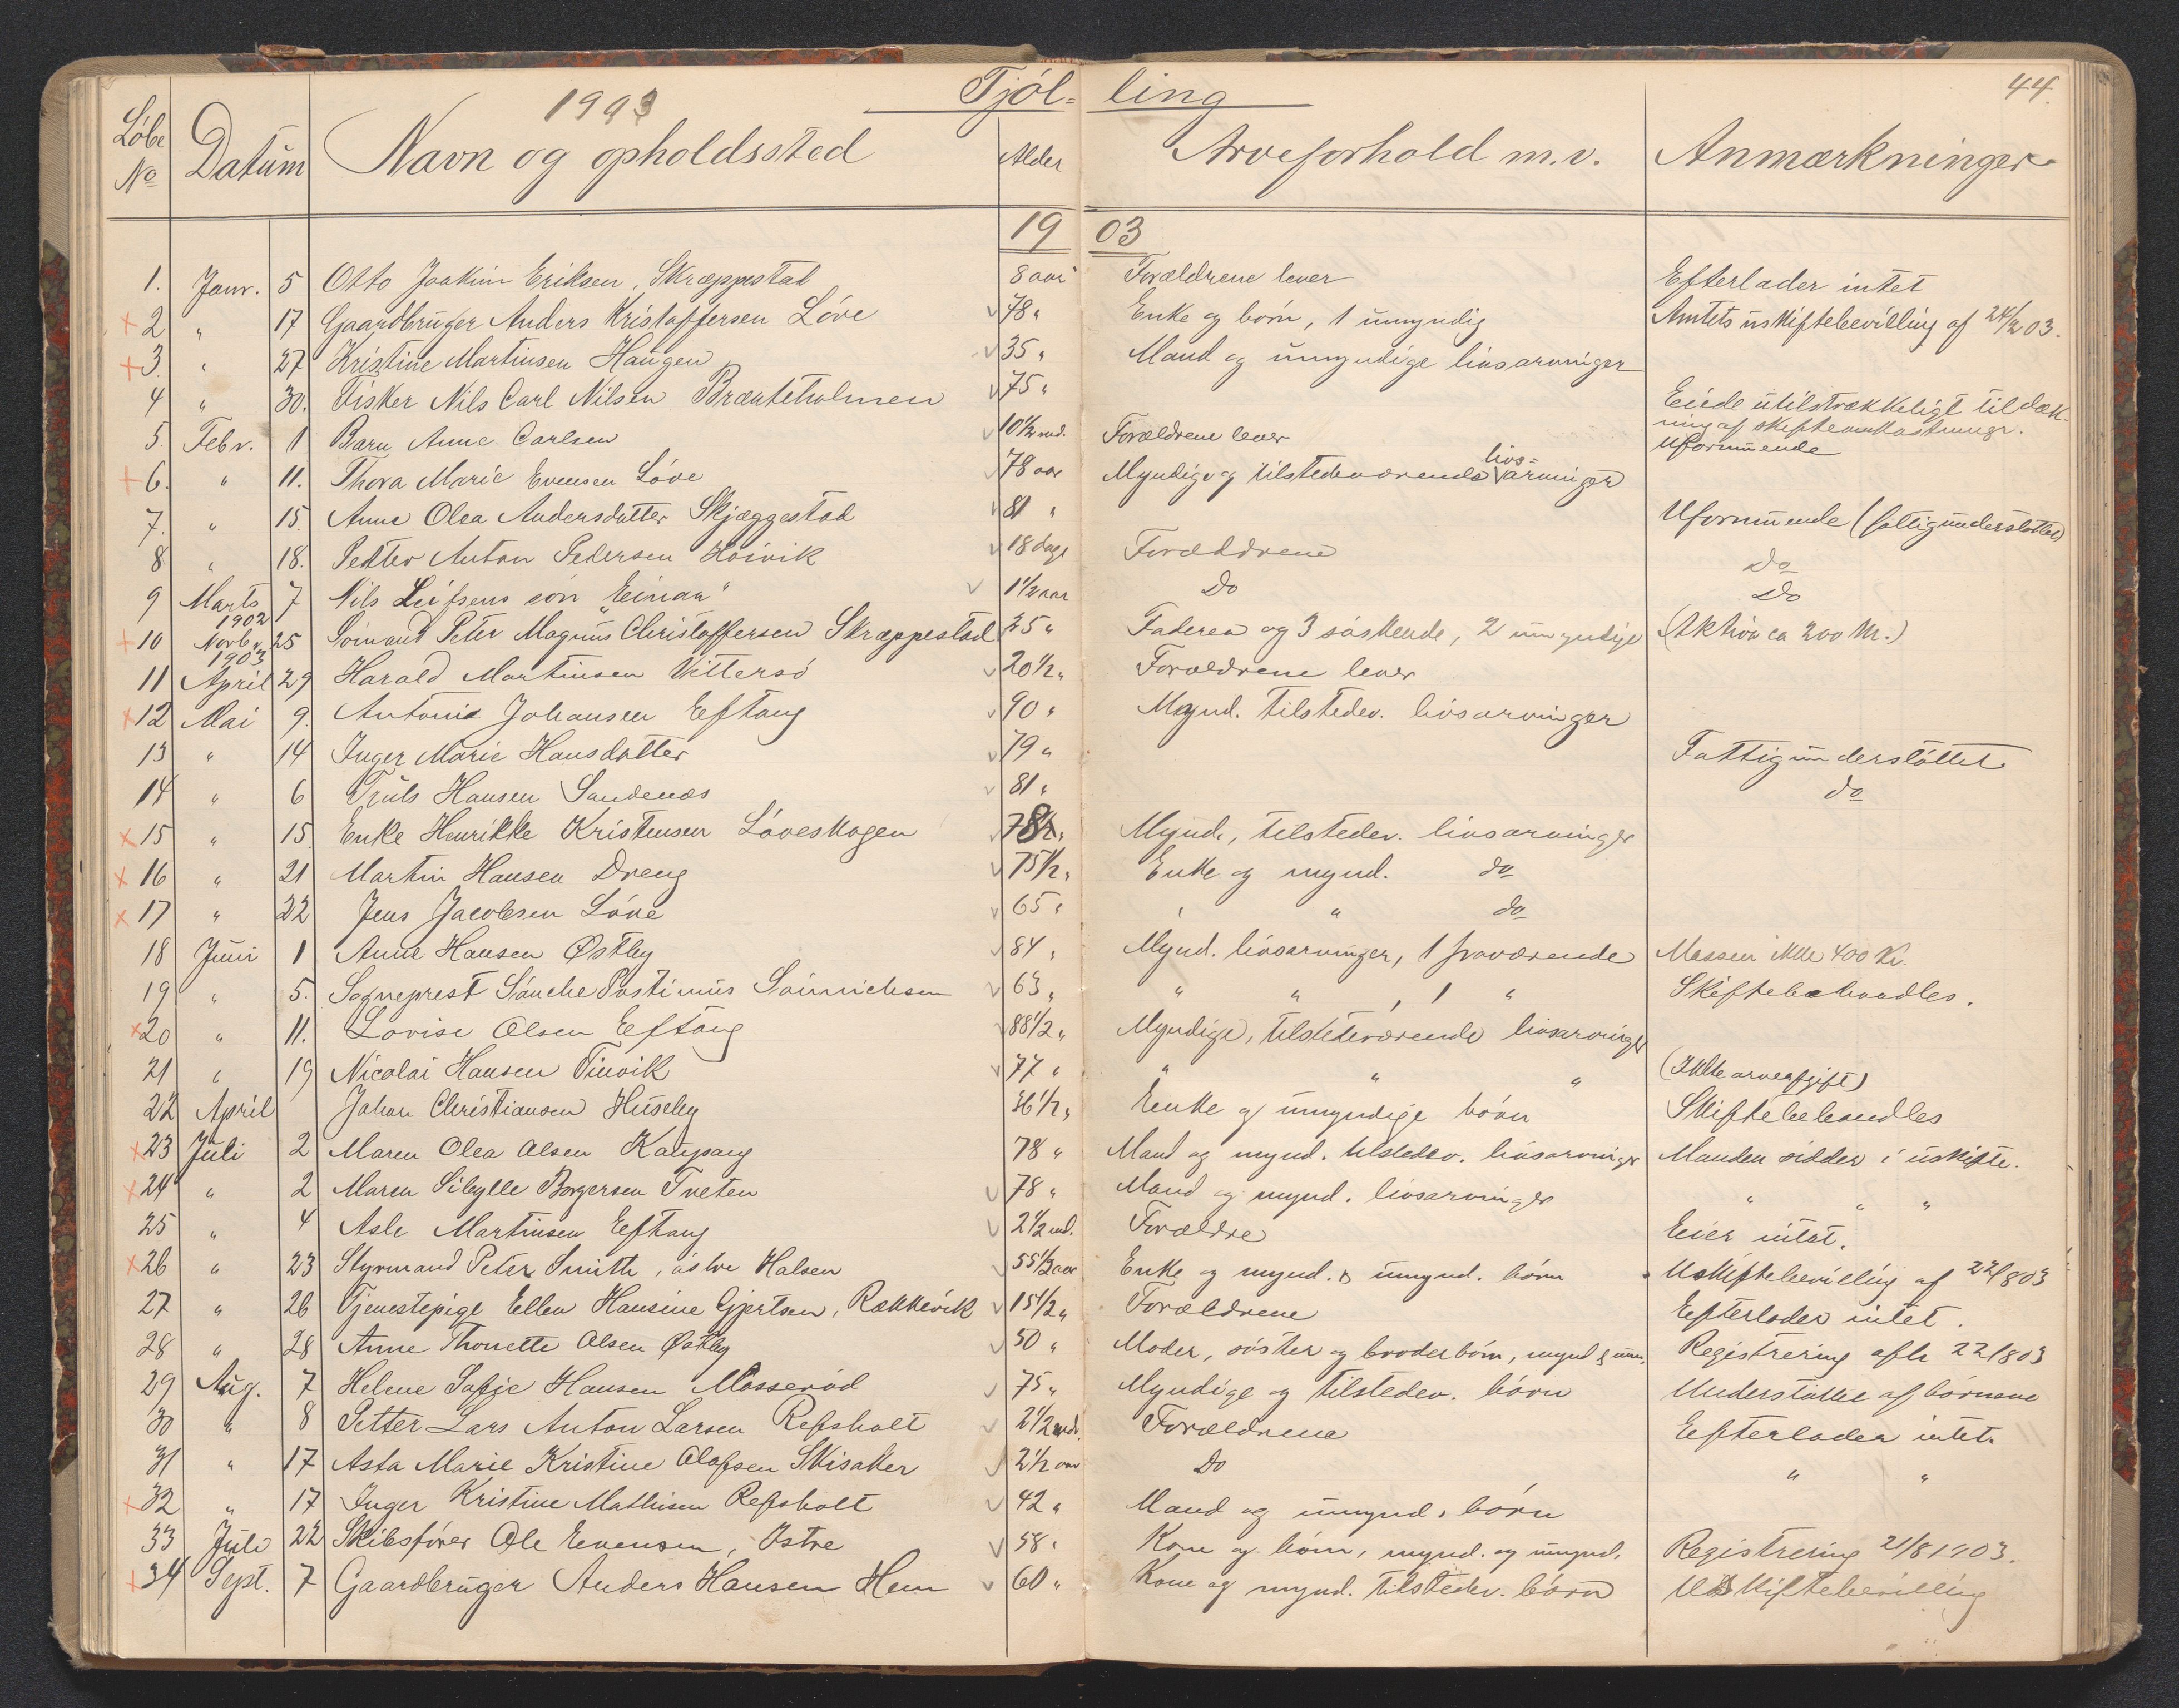 1903 Tjöl= ling 44.
Löbe No Datum Navn og opholdssted Alder Arveforhold m.v. Anmærkninger
19 03
1. Janr. 5 Otto Joakim Eriksen, Skræppestad 8 aar Forældrene lever Efterlader intet
+ 2 " 17 Gaardbruger Anders Kristoffersen Löve 78 " Enke og börn, 1 umyndig Amtets uskiftebevilling af 24/2 03.
+ 3. " 27 Kristine Martinsen Haugen 35 " Mand og umyndige livsarvinger
4 " 30. Fisker Nils Carl Nilsen Brænteholmen 75 " Eiede utilstrækkeligt til dæk-
ning af skifteomkostninger.
5 Febr. 1 Barn Anne Carlsen 10 1/2 md. Forældrene lever Uformuende
+ 6. " 11. Thora Marie Evensen Löve 78 aar Myndige og tilstedeværende livs= arvinger
7. " 15 Anne Olea Andersdatter Skjæggestad 81 " Uformuende (fattigunderstöttet)
8 " 18. Petter Anton Pedersen 18 dage Forældrene Do
9 Marts 7 Nils Leifsens sön "Einar" 1 1/2 aar Do Do
+ 10 1902 Novbr. 25 Sömand Peter Magnus Christoffersen Skræppestad 25 " Faderen og 3 söskende, 2 umyndige (Aktiva ca 200 Kr.)
11 1903 April 29 Harald Martinsen Vittersö 20 1/2 " Forældrene lever
+ 12 Mai 9. Antonie Johansen Eftang 90 " Mynd. tilstedev. livsarvinger
13 " 14 Inger Marie Hansdatter 79 " Fattigunderstöttet
14 " 6 Truls Hansen Sandenæs 81 " do
x 15 " 15 Enke Henrikke Kristensen Löveskogen 78 " Mynd., tilstedev. livsarvinger
x 16 " 21 Martin Hansen Dreng 75 1/2 " Enke og mynd. do
x 17 " 22 Jens Jacobsen Löve 65 " " " do
18 Juni 1 Anne Hansen Østby 84 " Mynd. livsarvinger, 1 fraværende Massen ikke 400 Kr.
19 " 5. Sogneprest 63 " " " , 1 " Skiftebehandles.
x 20 " 11. Lovise Olsen Eftang 88 1/2 " Myndige, tilstedeværende livsarvinger
21 " 19 Nicolai Hansen Tinvik 77 " " " " (Ikke arveafgift)
22 April Johan Christiansen Huseby 36 1/2 " Enke og umyndige börn Skiftebehandles
x 23 Juli 2 Maren Olea Olsen Kaupang 78 " Mand og mynd. tilstedev. livsarvinger Manden sidder i uskifte.
x 24 " 2 Maren Sibylle Borgersen Tveten 78 " Mand og mynd. livsarvinger " " "
25 " 4 Asle Martinsen Eftang 2 1/2 md. Forældre Eier intet.
x 26 " 23 Styrmand Peter Smith, östre Halsen 55 1/2 aar Enke og mynd. & umynd. börn Uskiftebevilling af 22/8 03
27 " 26 Tjenestepige Ellen Hansine Gjertsen, Rækkevik 15 1/2 " Forældrene Efterlader intet.
28 " 28 Anne Thonette Olsen Østby 50 " Moder, söster og broderbörn, mynd & um. Registrering afh. 22/8 03
29 Aug. 7 Helene Sofie Hansen Mosseröd 75 " Myndige og tilstedev. börn Understöttet af börnene
30 " 8 Petter Lars Anton Larsen Refsholt 2 1/2 mdr. Forældrene Efterlader intet.
31 " 17 Asta Marie Kristine Olafsen Skisaker 2 1/2 aar Do " "
x 32 " 17 Inger Kristine Mathisen Refsholt 42 " Mand og umynd. börn
33 Juli 22 Skibsförer Ole Evensen, Østre 58 " Kone og börn, mynd. og umynd. Registrering 21/8 1903.
+ 34 Sept. 7 Gaardbruger Anders Hansen Hem 60 " Kone og mynd. tilstedev. börn Uskiftebevilling